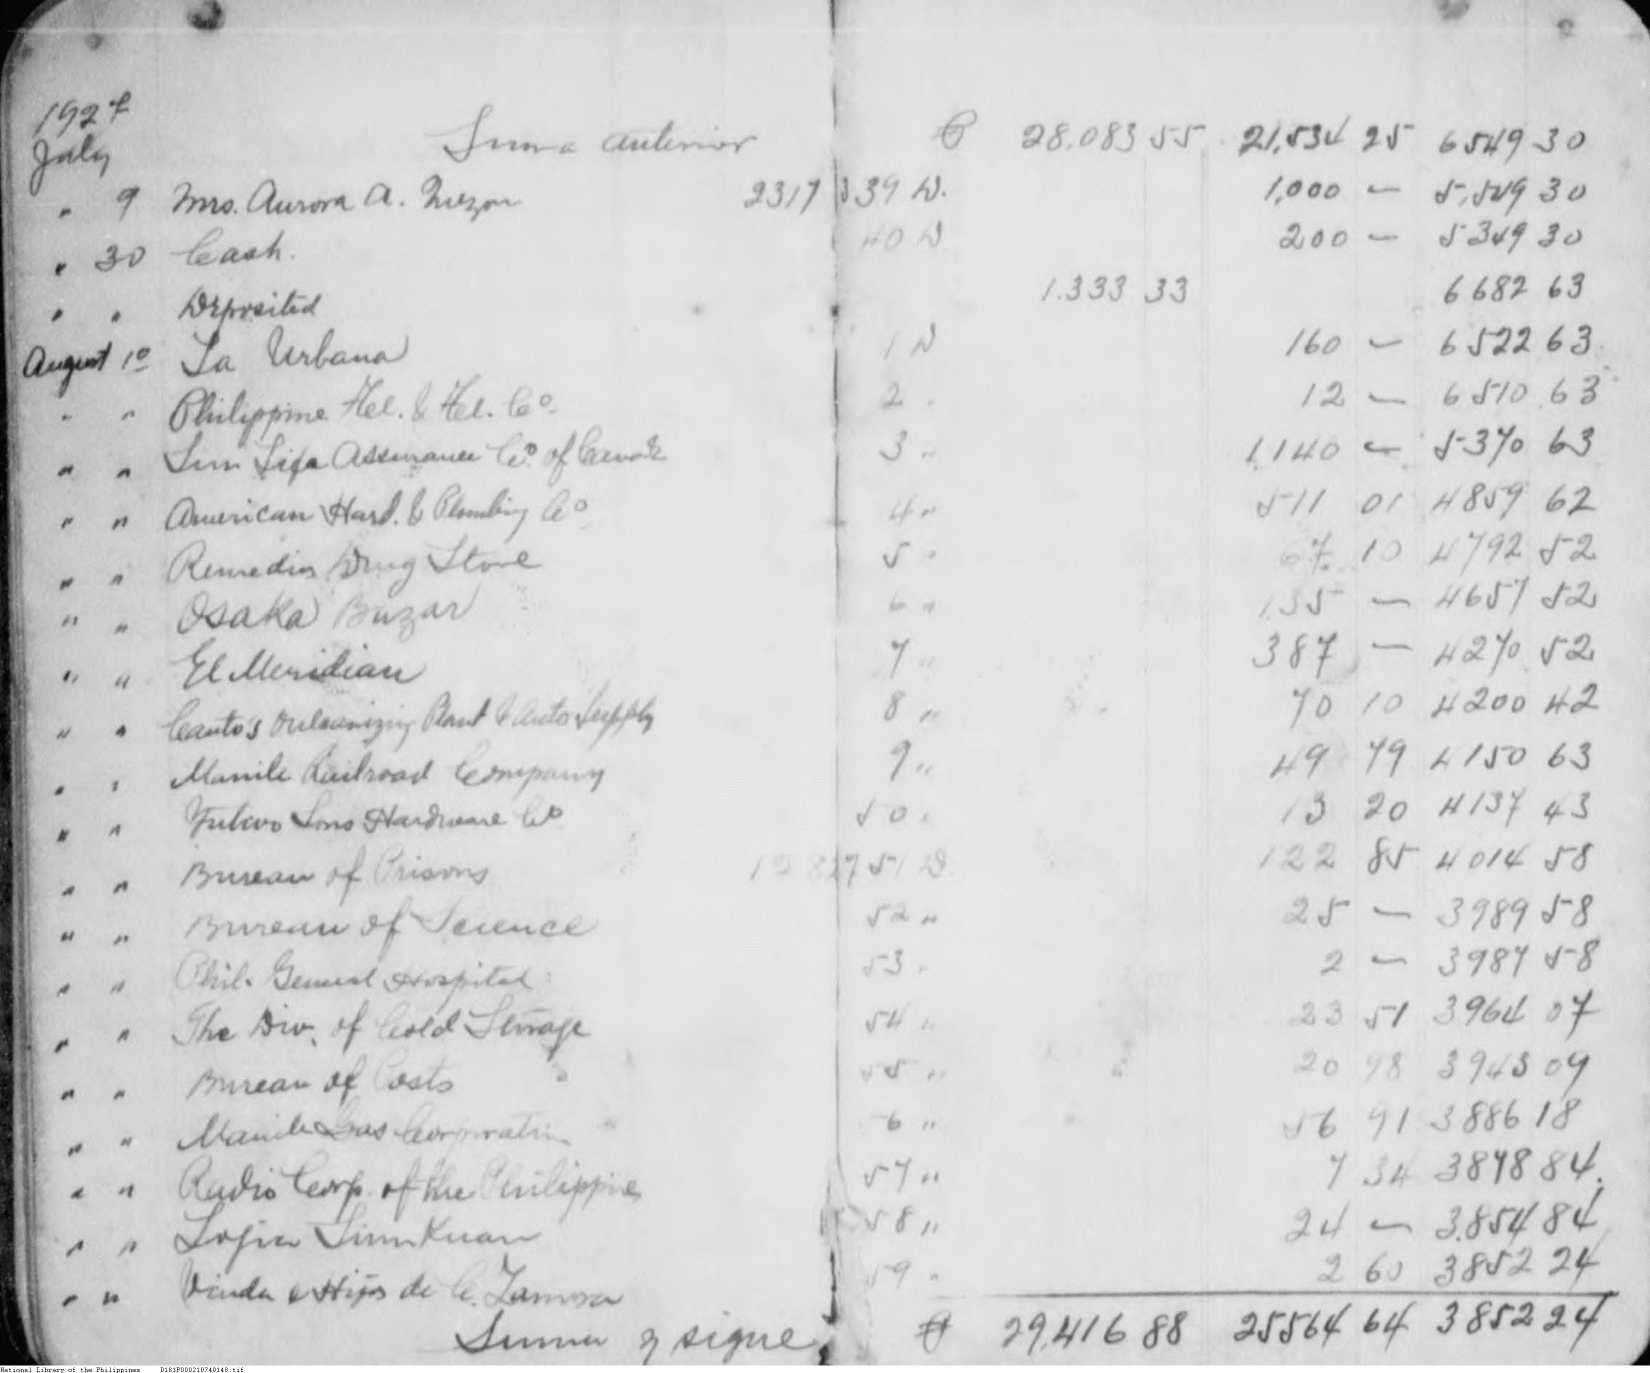 1927 Suma anterior ₱ 28.083 55 21,534 25 6549 30
July
" 9 Mrs. Aurora A. Quezon 2317 339 D. 1,000 — 5,549 30
" 30 Cash. 40 D 200 — 5349 30
" " Deposited 1.333 33 6682 63
August 1º La Urbana 1 D 160 — 6522 63
" " Philippine Tel. & Tel. Co. 2 " 12 — 6510 63
" " Sun Life Assurance Co. of Canada 3 " 1,140 — 5370 63
" " American Hard. & Plumbing Co 4 " 511 01 4859 62
" " Remedios Drug Store 5 " 67 10 4792 52
" " Osaka Bazar 6 " 135 — 4657 52
" " El Meridian 7 " 387 — 4270 52
" " Canto's Vulcanizing Plant & Auto Supply 8 " 70 10 4200 42
" " Manila Railroad Company 9 " 49 79 4150 63
" " Yutivo Sons Hardware Co 50 " 13 20 4137 43
" " Bureau of Prisons 51 D 122 85 4014 58
" " Bureau of Science 52 " 25 — 3989 58
" " Phil. General Hospital 53 " 2 — 3987 58
" " The Div. of Cold Storage 54 " 23 51 3964 07
" " Bureau of Posts 55 " 20 98 3943 09
" " Manila Gas Corporation 6 " 56 91 3886 18
" " Radio Corp. of the Philippines 57 " 7 34 3878 84.
" " Logia Sinukuan 58 " 24 — 3.854 84
" " Viuda e Hijos de C. Zamora 59 " 2 60 3852 24
Suma y sigue ₱ 29,416 88 25564 64 3852 24
National Library of the Philippines D181P000210740148.tif